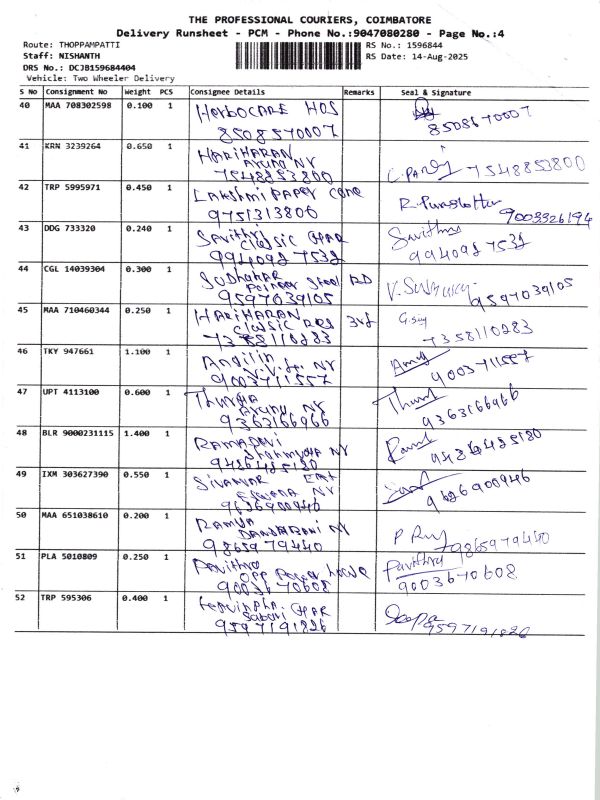 THE PROFESSIONAL COURIERS, COIMBATORE
Delivery Runsheet - PCM - Phone No.:9047080280 - Page No.:4
Route: THOPPAMPATTI
RS No.: 1596844
Staff: NISHANTH
RS Date: 14-Aug-2025
DRS No.: DCJB159684404
Vehicle: Two Wheeler Delivery
S No Consignment No Weight PCS Consignee Details Remarks Seal & Signature
40 MAA 708302598 0.100 1 HerboCARE HOS
8508570007 8508670007
41 KRN 3239264 0.650 1 HARIHARAN
AYUNU NY
7548853800 7548853800
42 TRP 5995971 0.450 1 LAKShmi PAPER CONE
9751313806 9003326194
43 DDG 733320 0.240 1 Savithri Savithri
CLASSIC APAR
9940927532 9940927532
44 CGL 14039304 0.300 1 SUDHAKAR RD
Pioneer Steel
9597039105 9597039105
45 MAA 710460344 0.250 1 HARIHARAN 3rd
classic RES
7358110283 7358110283
46 TKY 947661 1.100 1 Angilin
NY
9003711557 9003711557
47 UPT 4113100 0.600 1
AYUNU NY
9363166966 9363166966
48 BLR 9000231115 1.400 1 RAMADEVI
NY
9486485180 9486485180
49 IXM 303627390 0.550 1 SIVAKUMAR
NY
9626900946 9626900946
50 MAA 651038610 0.200 1 RAMYA
NY
9865979440 9865979440
51 PLA 5010809 0.250 1 Pavithra Pavithra
OPP Power house
9003670608 9003670608
52 TRP 595306 0.400 1
Sabari APAR
9597191826 9597191826